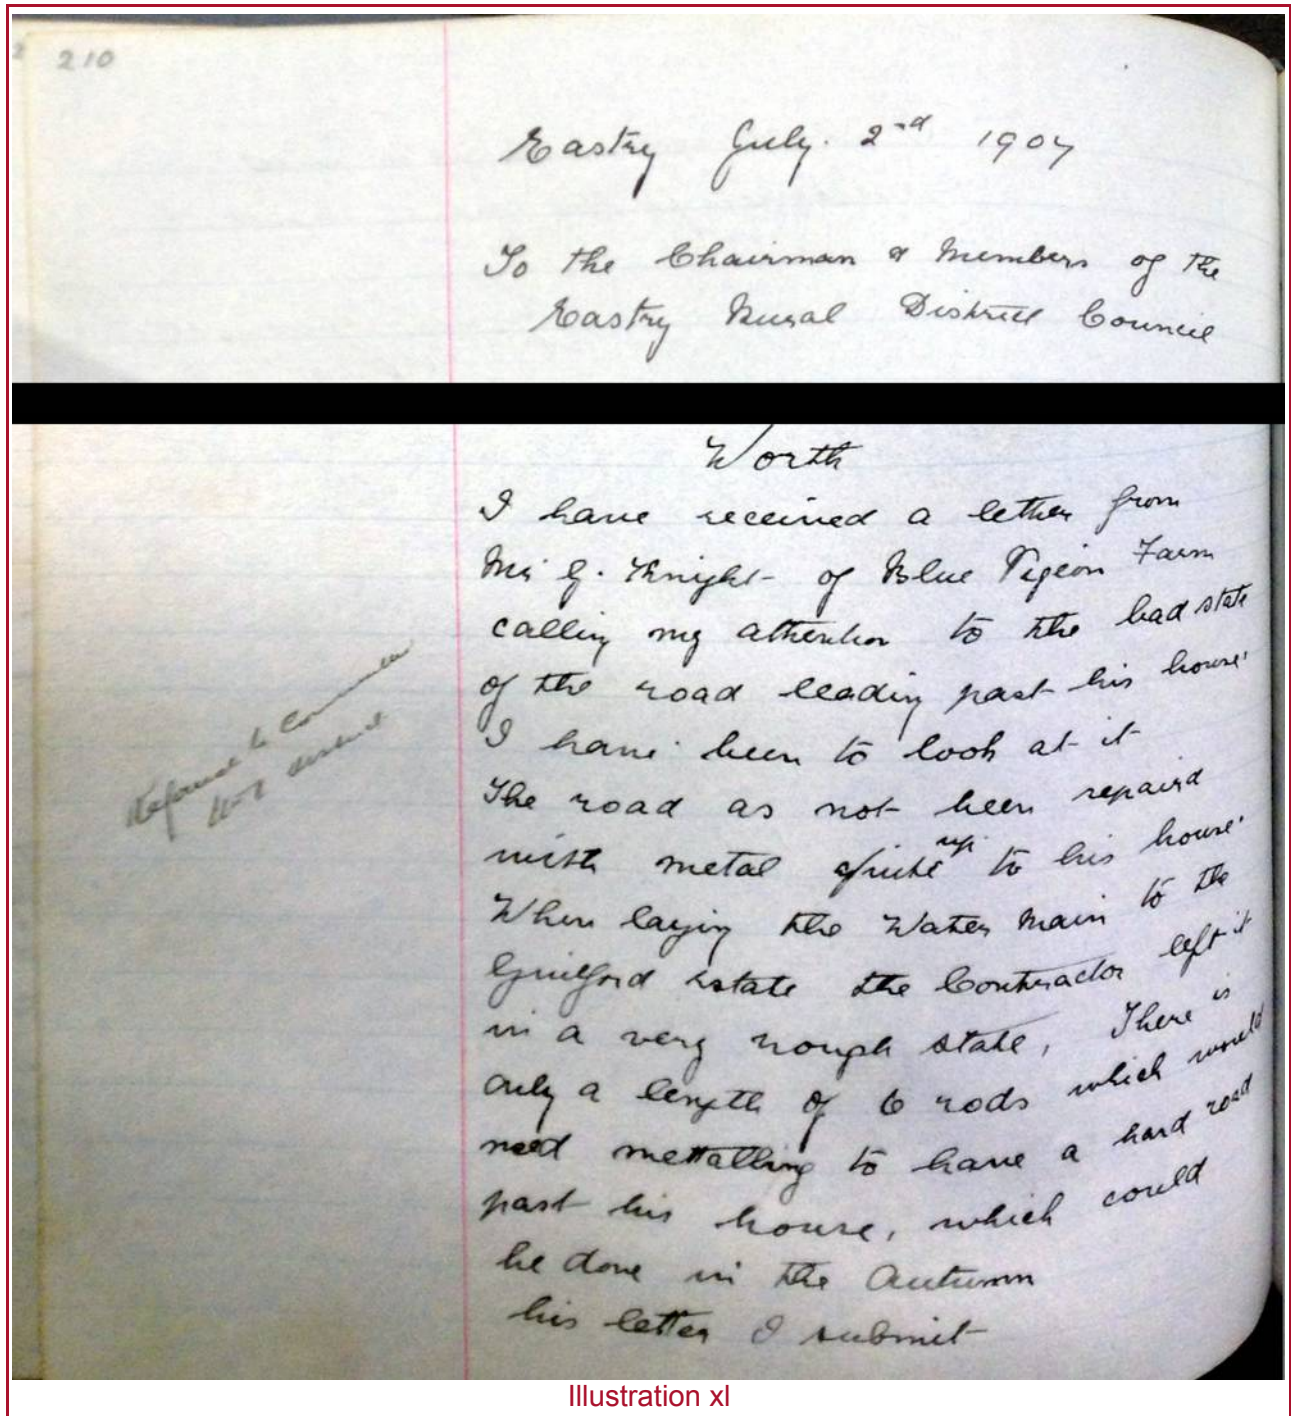 210
Eastry July. 2nd 1907
To the Chairman & Members of the
Eastry Rural District Council
Worth
I have received a letter from
Mr G. Knight of Blue Pigeon Farm
calling my attention to the bad state
of the road leading past his house
I have been to look at it
The road as not been repaird
with metal quite up to his house
When laying the Water Main to the
Guilford estate the Contractor left it
in a very rough state, There is
only a length of 6 rods which would
need mettalling to have a hard road
past his house, which could
be done in the Autumn
his letter I submit
Illustration xl